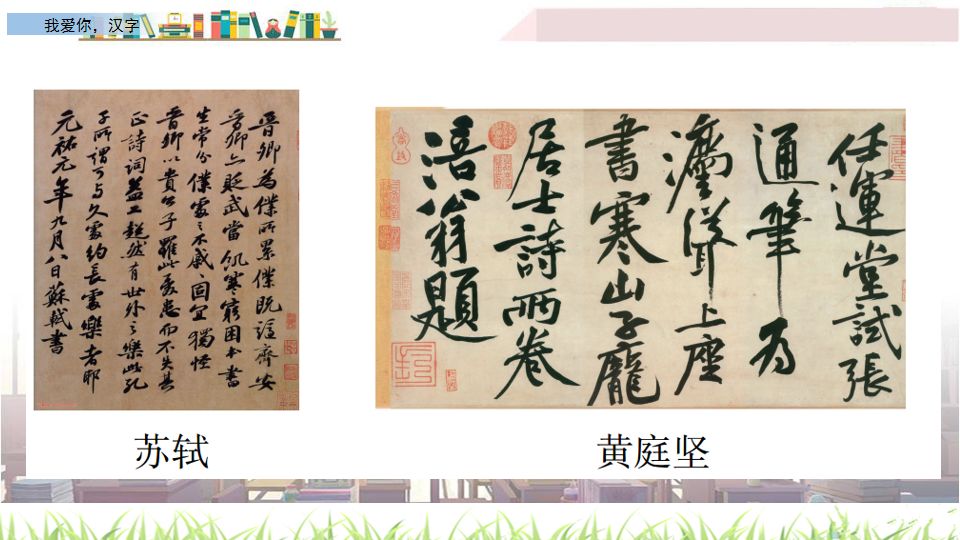 我爱你,汉字
晉卿為僕所累僕既謫齊安
晉卿亦貶武當飢寒窮困本書
生常分僕處之不戚戚固宜獨怪
晉卿以貴公子罹此憂患而不失其
正詩詞益工超然有世外之樂此孔
子所謂可與久處約長處樂者耶
元祐元年九月八日蘇軾書
任運堂試張
通筆為
灋聳上座
書寒山子龐
居士詩兩卷
涪翁題
苏轼
黄庭坚